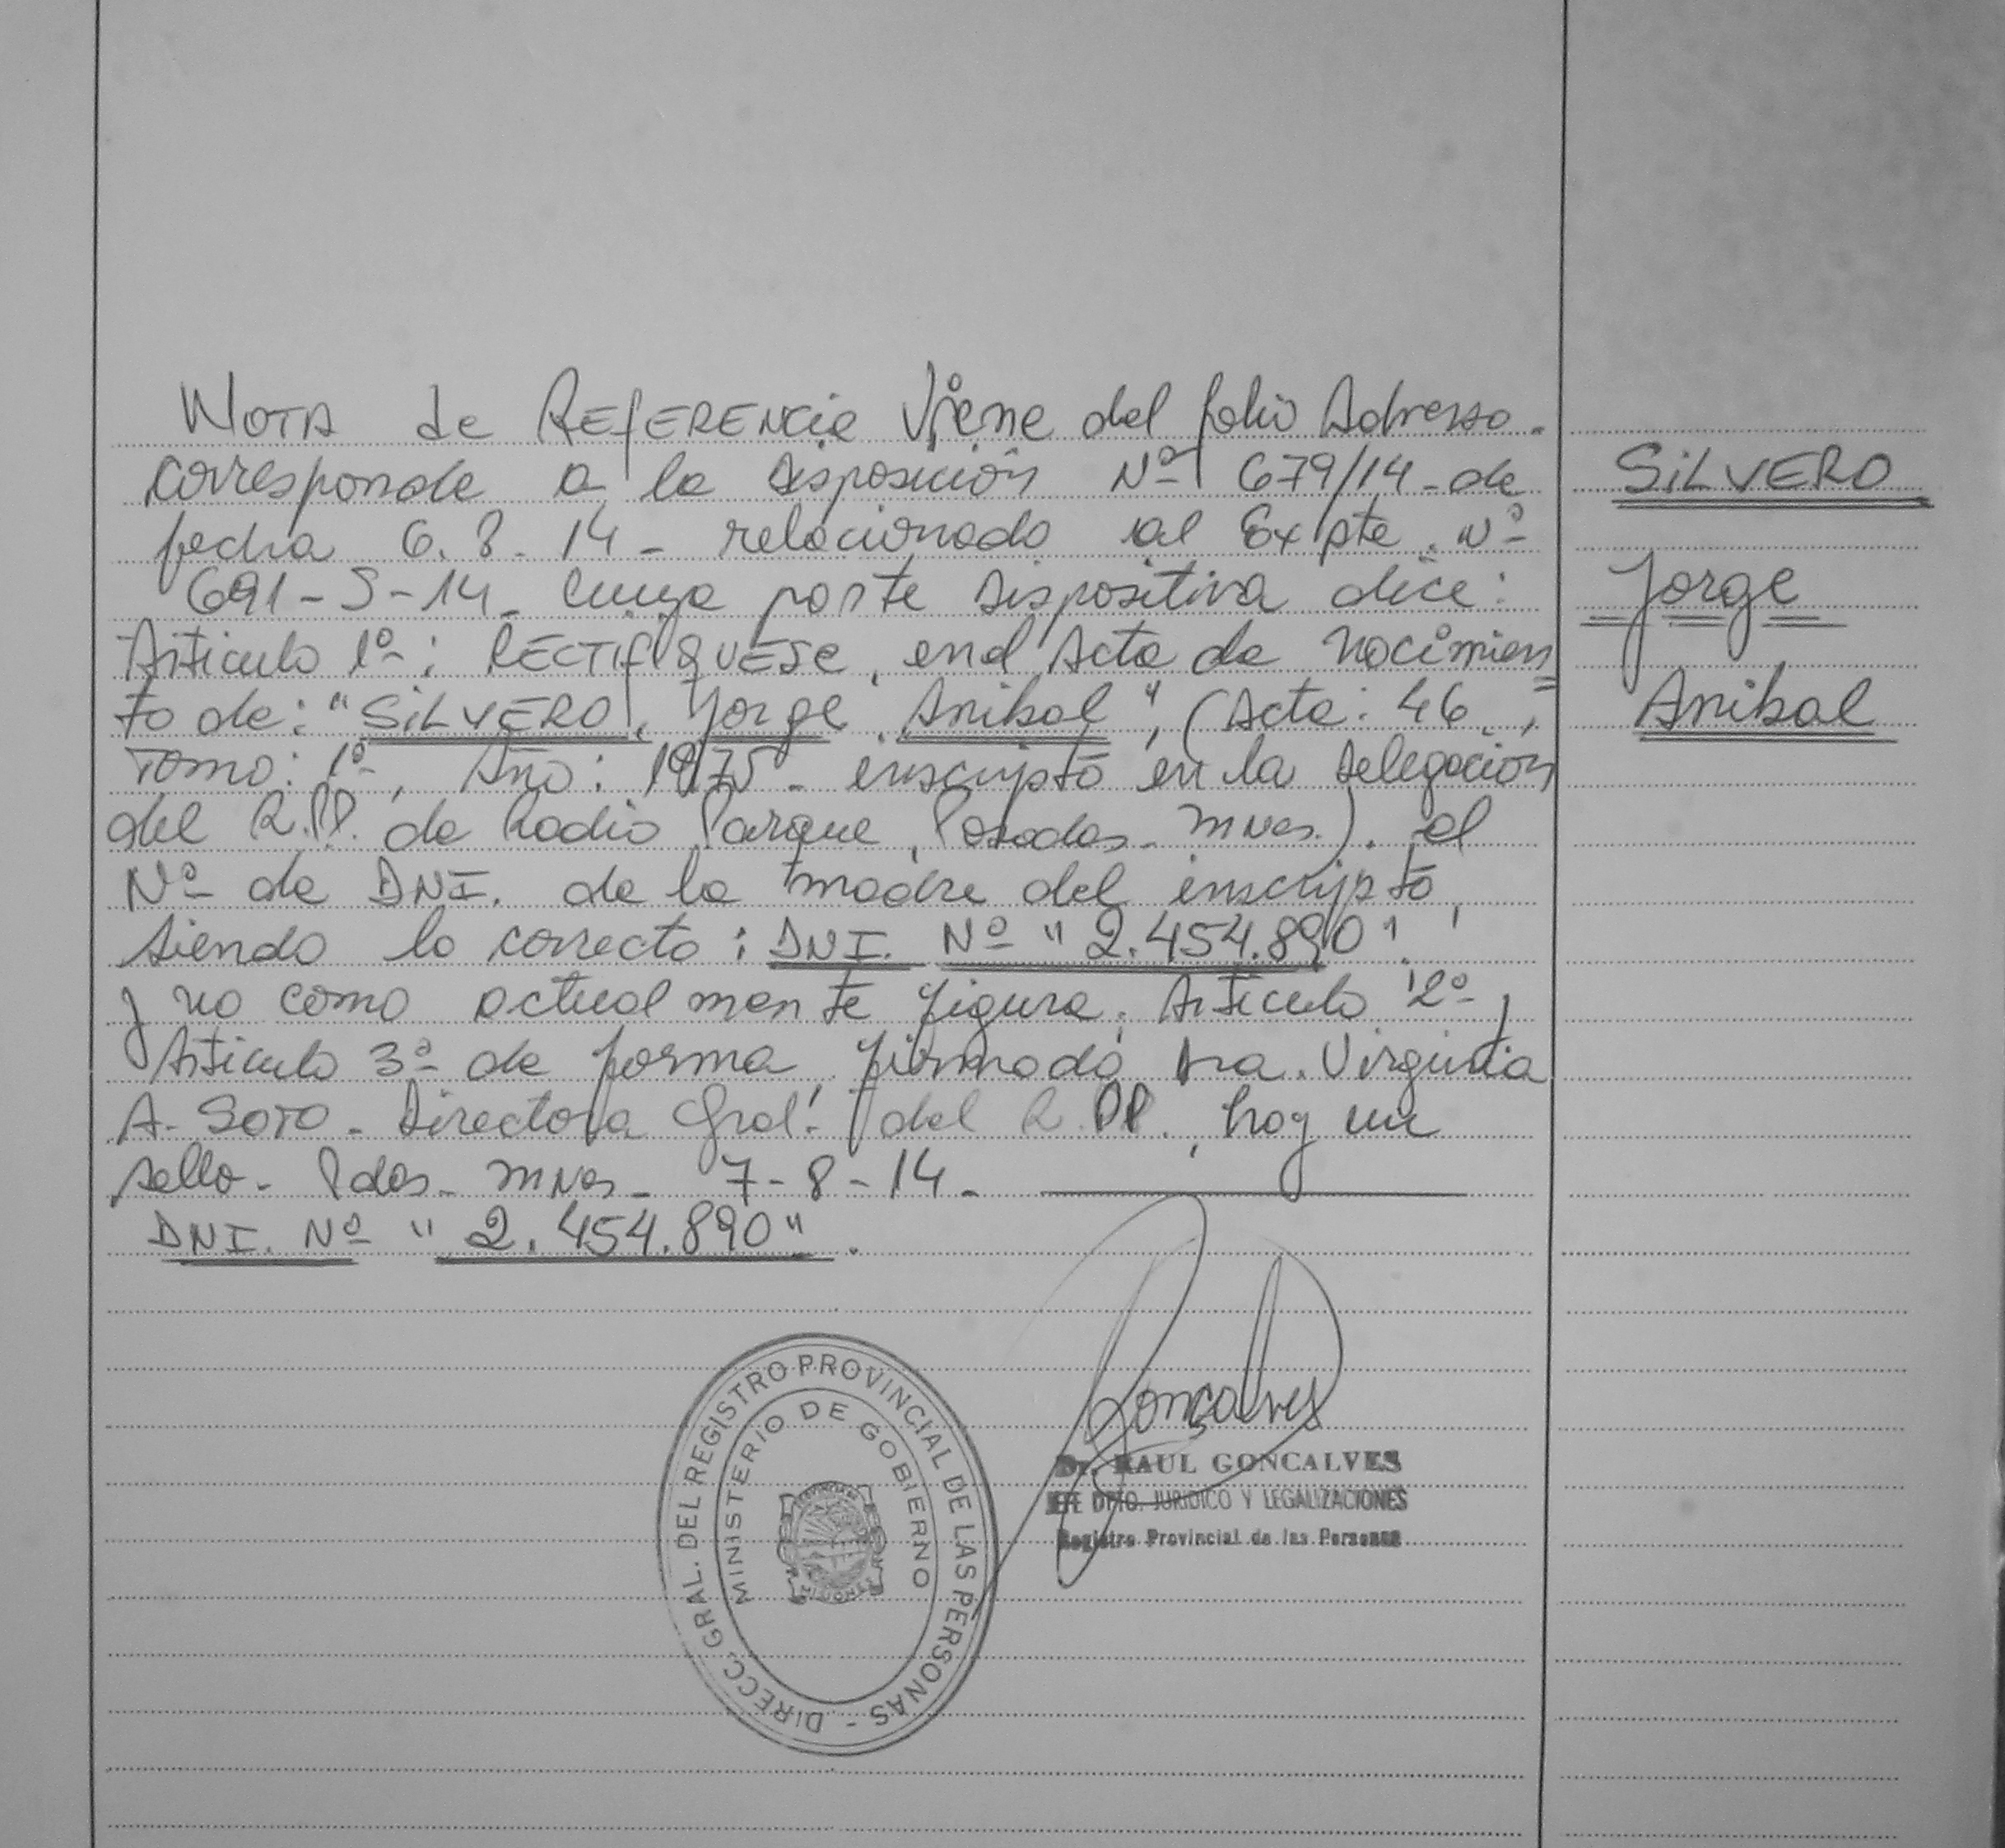 Nota de Referencia Viene del folio Adverso.
Corresponde a la Disposición Nº 679/14 - de
fecha 6.8.14 - relacionado al Expte. Nº
691-S-14. Cuya parte dispositiva dice:
Articulo 1º: RECTIFIQUESE, en el Acta de Nacimien
to de: "SILVERO, Jorge Anibal", (Acta: 46,
Tomo: 1º, Año: 1975 - inscripto en la Delegación
del R.PP. de Radio Parque, Posadas - Mnes.). el
Nº de DNI. de la madre del inscripto,
siendo lo correcto: DNI. Nº "2.454.890".
y no como actualmente figura. Articulo 2º y
Articulo 3º de forma, firmado Dra. Virginia
A. Soto - Directora Gral. del R.PP., hay un
sello - Pdas - Mnes - 7-8-14.
DNI. Nº "2.454.890".
SILVERO
Jorge
Anibal
DIRECC. GRAL. DEL REGISTRO PROVINCIAL DE LAS PERSONAS -
MINISTERIO DE GOBIERNO
Goncalves
Dr. RAUL GONCALVES
JEFE DPTO. JURIDICO Y LEGALIZACIONES
Registro Provincial de las Personas